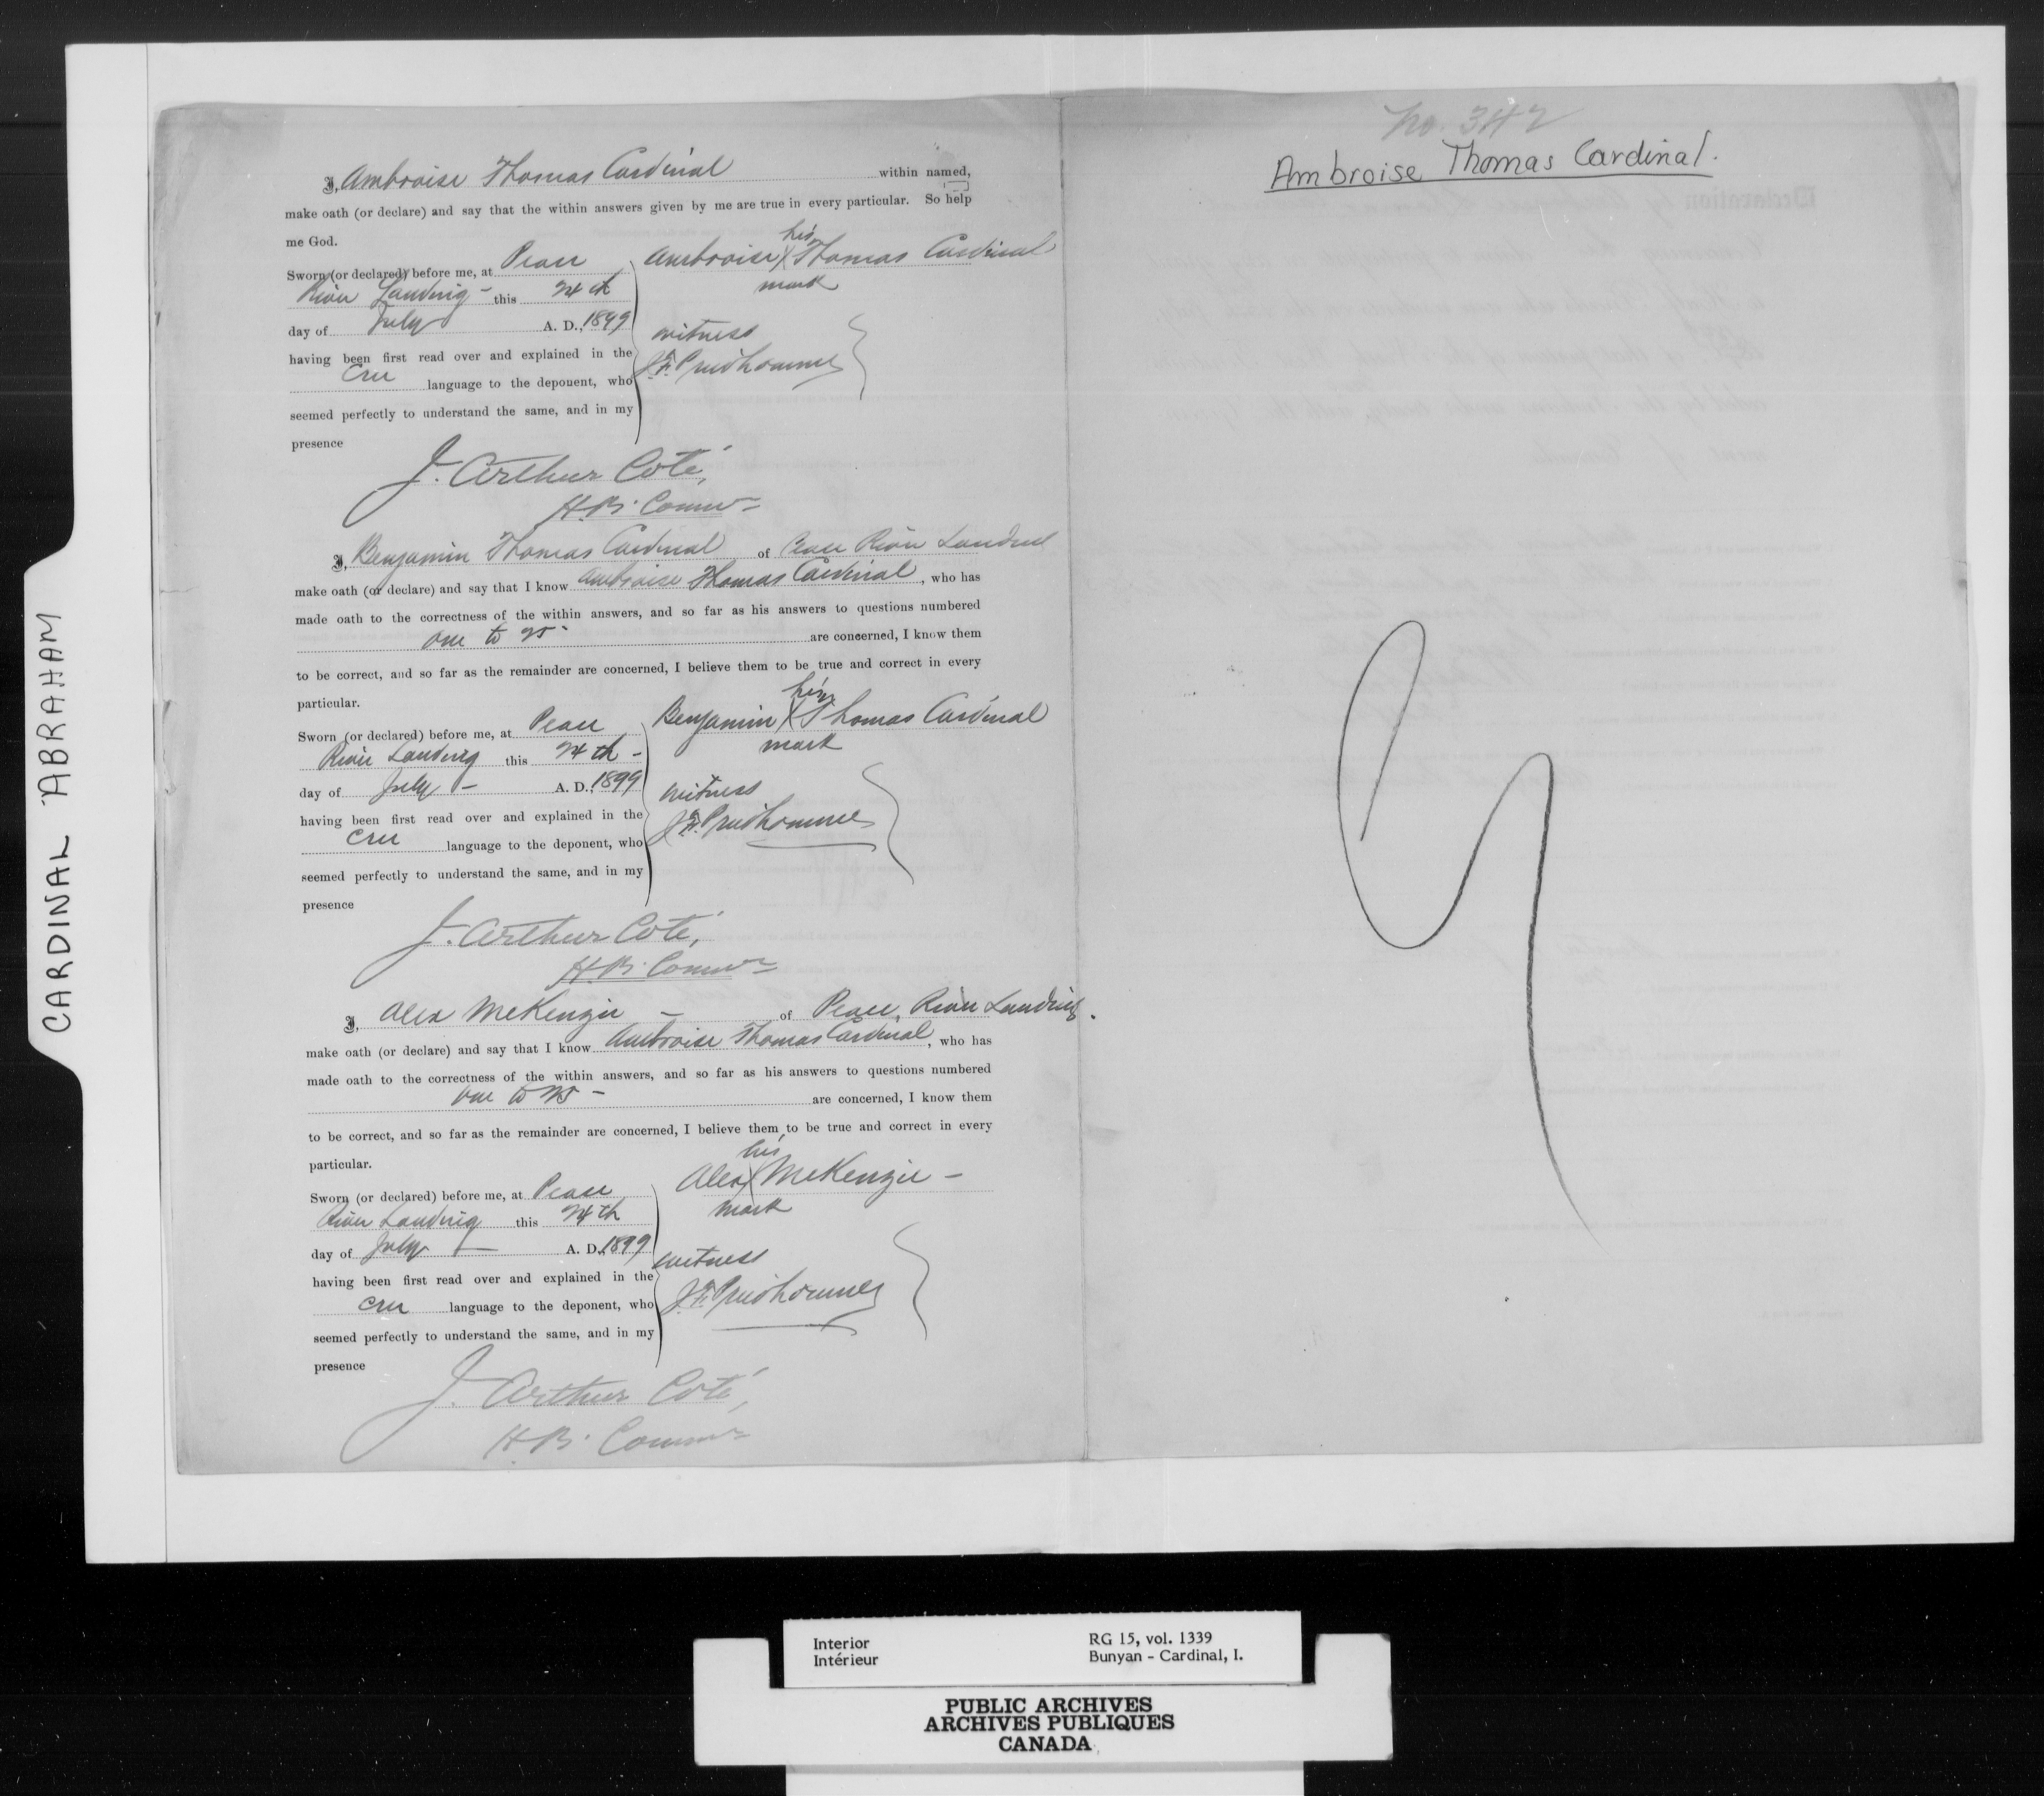 CARDINAL ABRAHAM
I, Ambroise Thomas Cardinal within named,
make oath (or declare) and say that the within answers given by me are true in every particular. So help
me God.
Sworn (or declared) before me, at Peace
River Landing - this 24th
day of July A. D., 1899
having been first read over and explained in the
Cree language to the deponent, who
seemed perfectly to understand the same, and in my
presence
Ambroise his X Thomas Cardinal
mark
witness
Prudhomme
J. Arthur Coté,
H.B. Commr
I, Benjamin Thomas Cardinal of Peace River Landing
make oath (or declare) and say that I know Ambroise Thomas Cardinal, who has
made oath to the correctness of the within answers, and so far as his answers to questions numbered
one to 25 are concerned, I know them
to be correct, and so far as the remainder are concerned, I believe them to be true and correct in every
particular.
Sworn (or declared) before me, at Peace
River Landing this 24th -
day of July - A. D., 1899
having been first read over and explained in the
Cree language to the deponent, who
seemed perfectly to understand the same, and in my
presence
Benjamin his X Thomas Cardinal
mark
witness
Prudhomme
J. Arthur Coté,
H.B. Commr
I, Alex McKenzie - of Peace River Landing.
make oath (or declare) and say that I know Ambroise Thomas Cardinal, who has
made oath to the correctness of the within answers, and so far as his answers to questions numbered
one to 25 - are concerned, I know them
to be correct, and so far as the remainder are concerned, I believe them to be true and correct in every
particular.
Sworn (or declared) before me, at Peace
River Landing this 24th
day of July - A. D., 1899
having been first read over and explained in the
Cree language to the deponent, who
seemed perfectly to understand the same, and in my
presence
Alex his X McKenzie -
mark
witness
Prudhomme
J. Arthur Coté,
H.B. Commr
No. 342
Ambroise Thomas Cardinal.
Interior
Intérieur
RG 15, vol. 1339
Bunyan - Cardinal, I.
PUBLIC ARCHIVES
ARCHIVES PUBLIQUES
CANADA